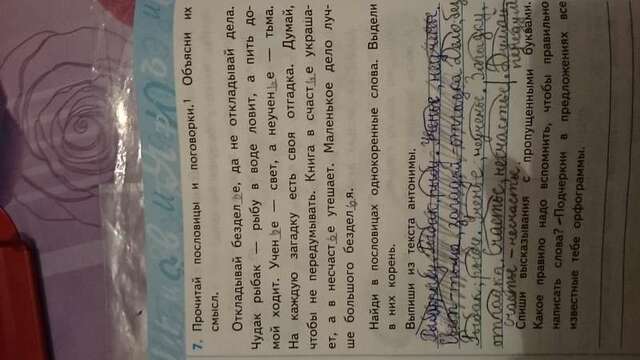 7. Прочитай пословицы и поговорки.¹ Объясни их
смысл.
Откладывай бездел ь е, да не откладывай дела.
Чудак рыбак — рыбу в воде ловит, а пить до-
мой ходит. Учен ь е — свет, а неучен ь е — тьма.
На каждую загадку есть своя отгадка. Думай,
чтобы не передумывать. Книга в счаст ь е украша-
ет, а в несчаст ь е утешает. Маленькое дело луч-
ше большого бездел ь я.
Найди в пословицах однокоренные слова. Выдели
в них корень.
Выпиши из текста антонимы.
Рыбак, рыбу. Ученье, неученье.
тьма, загадка - отгадка Дело, без
Рыбак, рыбу. Ученье, неученье. Загадку,
отгадка. Счастье, несчастье. Думай
счастье — несчастье. передум
Спиши высказывания с пропущенными буквами.
Какое правило надо вспомнить, чтобы правильно
написать слова? Подчеркни в предложениях все
известные тебе орфограммы.